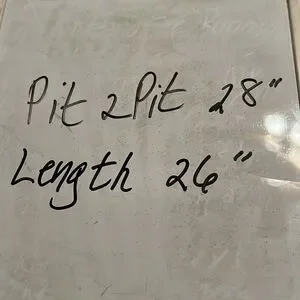 Pit 2 Pit 28"
Length 26"